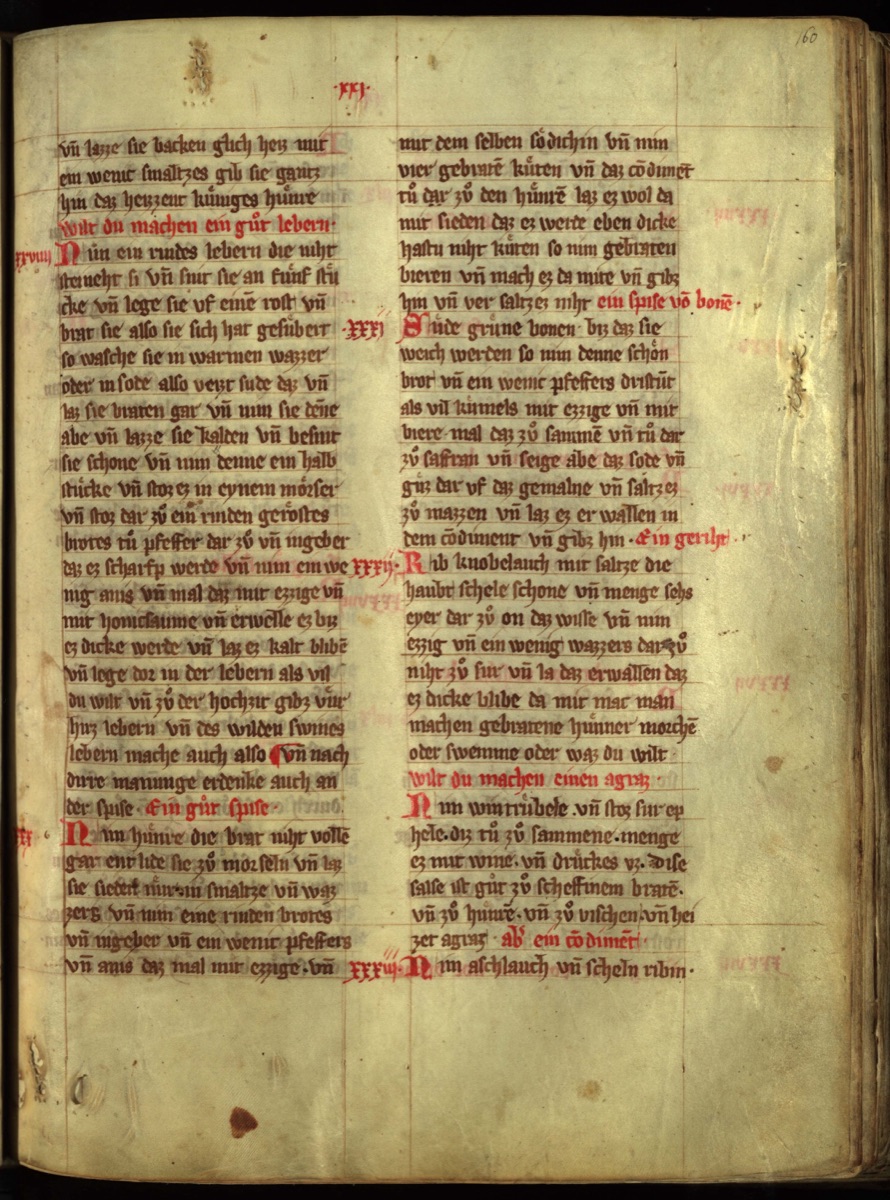 160
·xxi·
vn̄ lazze sie backen glich heiz mit
ein wenic smaltzes gib sie gantz
hin daz heizzent kuͤniges huͤnre
wilt du machen ein guͦt lebern·
xxviiii Nim ein rindes lebern die niht
steineht si vn̄ snit sie an fuͤnf stuͤ
cke vn̄ lege sie vf einē rost vn̄
brat sie also sie sich hat gesuͤbert
so wasche sie in warmen wazzer
oder in sode also veizt sude daz vn̄
laz sie braten gar vn̄ nim sie dēne
abe vn̄ lazze sie kalden vn̄ besnit
sie schone vn̄ nim denne ein halb
stuͤcke vn̄ stoz ez in eynem moͤrser
vn̄ stoz dar zuͦ ein rinden geroͤstes
brotes tuͦ pfeffer dar zuͦ vn̄ ingeber
daz ez scharfp werde vn̄ nim ein we
nig anis vn̄ mal daz mit ezzige vn̄
mit honicsaume vn̄ erwelle ez biz
ez dicke werde vn̄ laz ez kalt blibē
vn̄ lege dor in der lebern als vil
du wilt vn̄ zuͦ der hochzit gibz vuͤr
hirz lebern vn̄ des wilden swines
lebern mache auch also vn̄ nach
dirre manunge erdenke auch an
der spise· Ein guͦt spise·
xxx Nim huͤnre die brat niht volle
gar entlide sie zuͦ morseln vn̄ laz
sie sieden nuͤr in smaltze vn̄ waz
zers vn̄ nim eine rinden brotes
vn̄ ingeber vn̄ ein wenic pfeffers
vn̄ anis daz mal mit ezzige· vn̄
mit dem selben sodichin vn̄ nim
vier gebratē kuͤten vn̄ daz cōdimēt
tuͦ dar zuͦ den huͤnrē laz ez wol da
mit sieden daz ez werde eben dicke
hastu niht kuͤten so nim gebraten
bieren vn̄ mach ez da mite vn̄ gibz
hin vn̄ ver saltz ez niht ein spise vō bonē·
·xxxi Siude gruͤne bonen· biz daz sie
weich werden so nim denne schoͤn
brot vn̄ ein wenic pfeffers dristūt
als vil kuͤmels mit ezzige vn̄ mit
biere· mal daz zuͦ sammē vn̄ tuͦ dar
zuͦ saffran vn̄ seige abe daz sode vn̄
guͤz dar vf daz gemalne vn̄ saltz ez
zuͦ mazzen vn̄ laz ez er wallen in
dem cōdiment vn̄ gibz hin· Ein geriht
xxxij· Rib knobelauch mit saltze die
haubt schele schone vn̄ menge sehs
eyer dar zuͦ on daz wisse vn̄ nim
ezzig vn̄ ein wenig wazzers dar zuͦ
niht zuͦ sur vn̄ la daz erwallen daz
ez dicke blibe da mit mac man
machen gebratene huͤnner morchē
oder swemme oder waz du wilt·
wilt du machen einen agraz·
Nim wintruͤbele· vn̄ stoz sur ep
hele· diz tuͦ zuͦ sammene· menge
ez mit wine· vn̄ druͤckes vz· dise
salse ist guͦt zuͦ scheffinem bratē·
vn̄ zuͦ huͤnrē· vn̄ zuͦ vischen· vn̄ hei
zet agraz· ab' ein cōdimēt·
xxxiij· Nim aschlauch vn̄ scheln ribin·